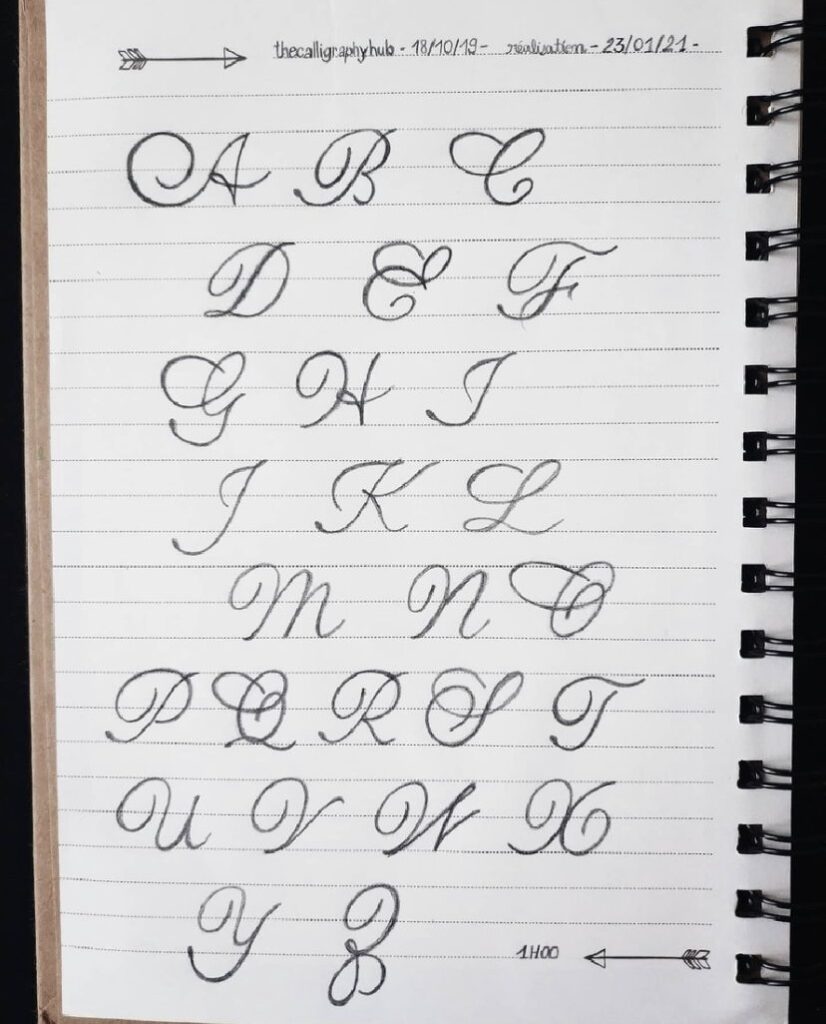 thecalligraphyhub - 18/10/19 - réalisation - 23/01/21 -
A B C
D E F
G H I
J K L
M N O
P Q R S T
U V W X
Y Z
1H00